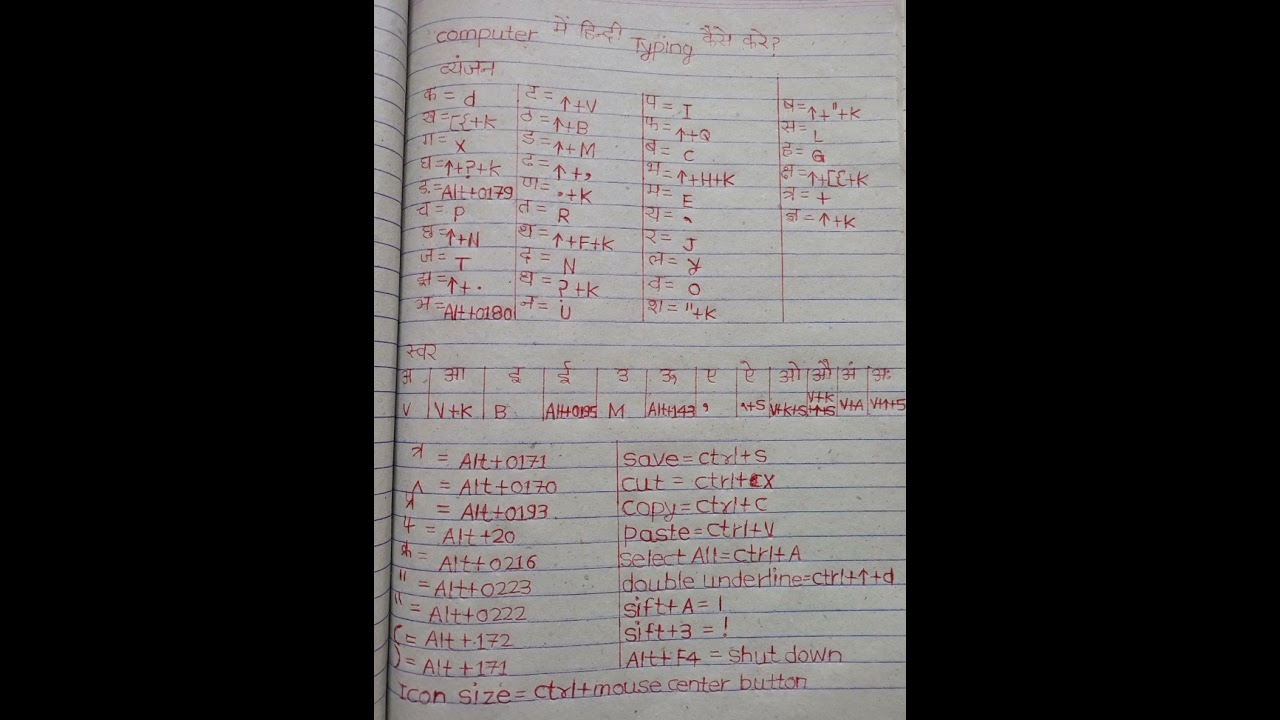 computer में हिन्दी Typing कैसे करे?
व्यंजन
क = d ट = ↑+V प = I ष = ↑+"+K
ख = [{+K ठ = ↑+B फ = ↑+Q स = L
ग = X ड = ↑+M ब = C ह = G
घ = ↑+?+K ढ = ↑+, भ = ↑+H+K क्ष = ↑+[{+K
ड. = Alt+0179 ण = .+K म = E त्र = +
च = P त = R य = , ज्ञ = ↑+K
छ = ↑+N थ = ↑+F+K र = J
ज = T द = N ल = y
झ = ↑+. ध = ?+K व = O
ञ = Alt+0180 न = U श = "+K
स्वर
अ आ इ ई उ ऊ ए ऐ ओ औ अं अः
V V+K B Alt+0195 M Alt+143 , ,+S V+K+S V+K+↑+S V+A V+↑+5
= Alt+0171 save = ctrl+s
= Alt+0170 cut = ctrl+X
= Alt+0193 copy = ctrl+C
= Alt+20 paste = ctrl+V
= Alt+0216 select All = ctrl+A
" = Alt+0223 double underline = ctrl+↑+d
" = Alt+0222 sift+A = |
( = Alt+172 sift+3 = !
) = Alt+171 Alt+F4 = shut down
Icon size = ctrl+mouse center button